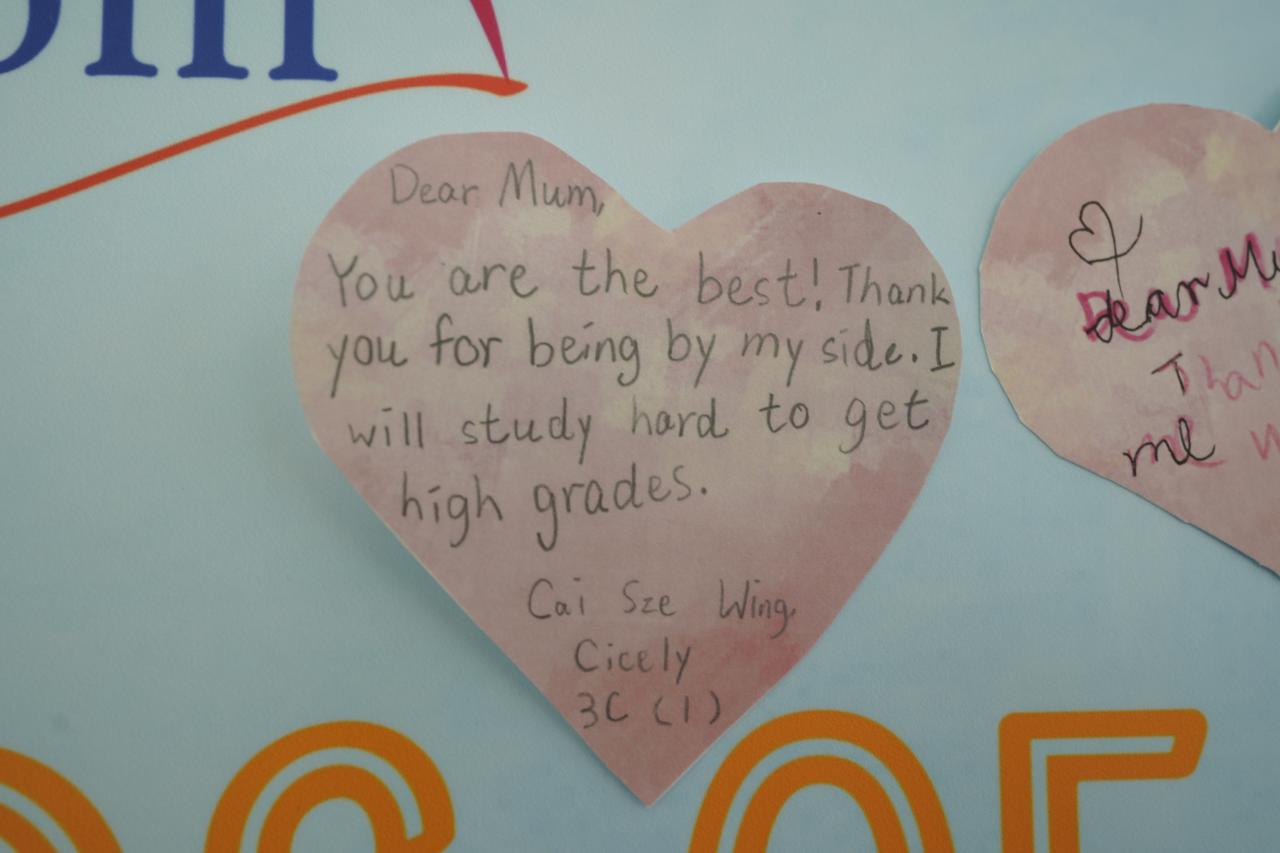 Dear Mum,
You are the best! Thank
you for being by my side. I
will study hard to get
high grades.
Cai Sze Wing,
Cicely
3C (1)
Dear
me
OF